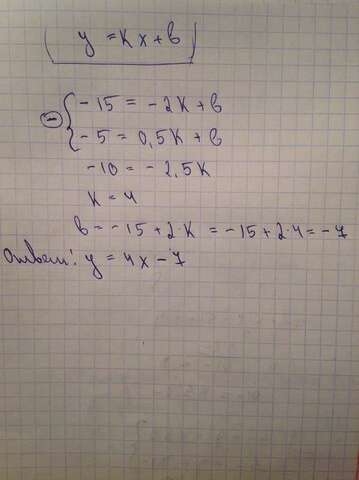 y = kx + b
- 15 = - 2k + b
- 5 = 0,5k + b
- 10 = - 2,5k
k = 4
b = - 15 + 2·k = - 15 + 2·4 = - 7
Ответ: y = 4x - 7